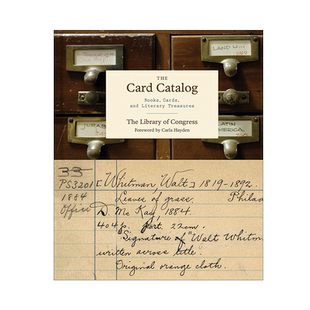 LAND WIN
THE
Card Catalog
Books, Cards,
and Literary Treasures
The Library of Congress
Foreword by Carla Hayden
LATIN
AMERICA
33
PS3201 [Whitman, Walt] 1819-1892.
1884 Leaves of grass. Philad
Office D. McKay 1884.
404 p. port. 22cm.
Signature of "Walt Whitm
written across title.
Original orange cloth.